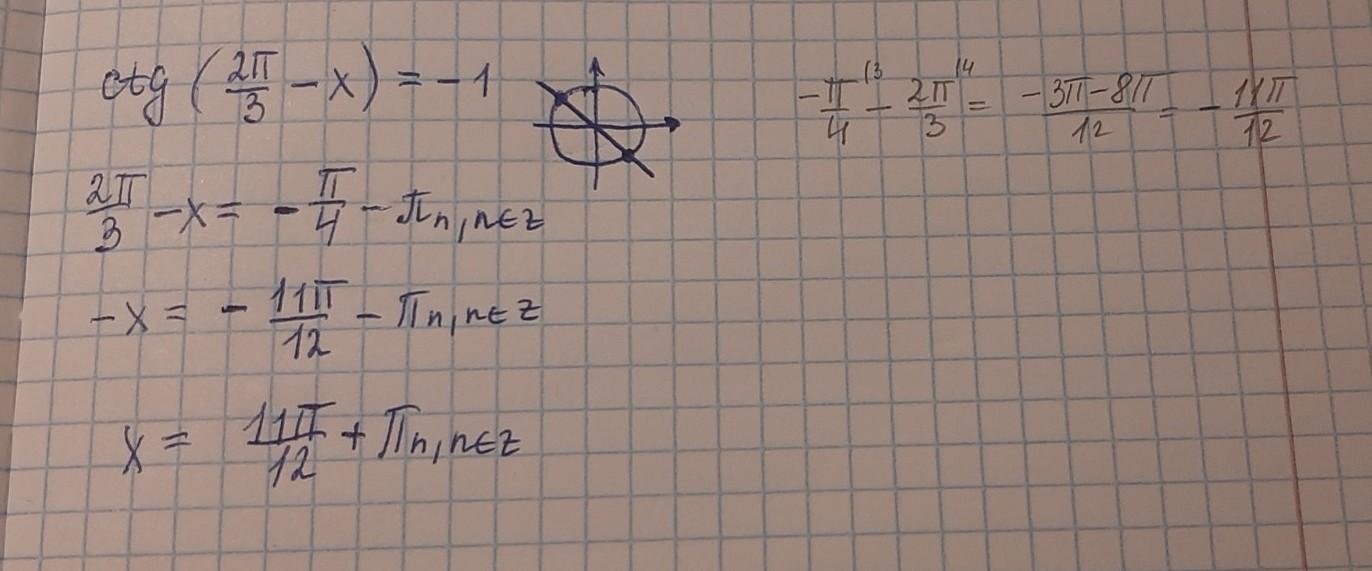 ctg (2π/3 − x) = −1
−π/4 |3 − 2π/3 |4 = −3π−8π/12 = −11π/12
2π/3 − x = −π/4 − πn, n∈z
−x = −11π/12 − πn, n∈z
x = 11π/12 + πn, n∈z